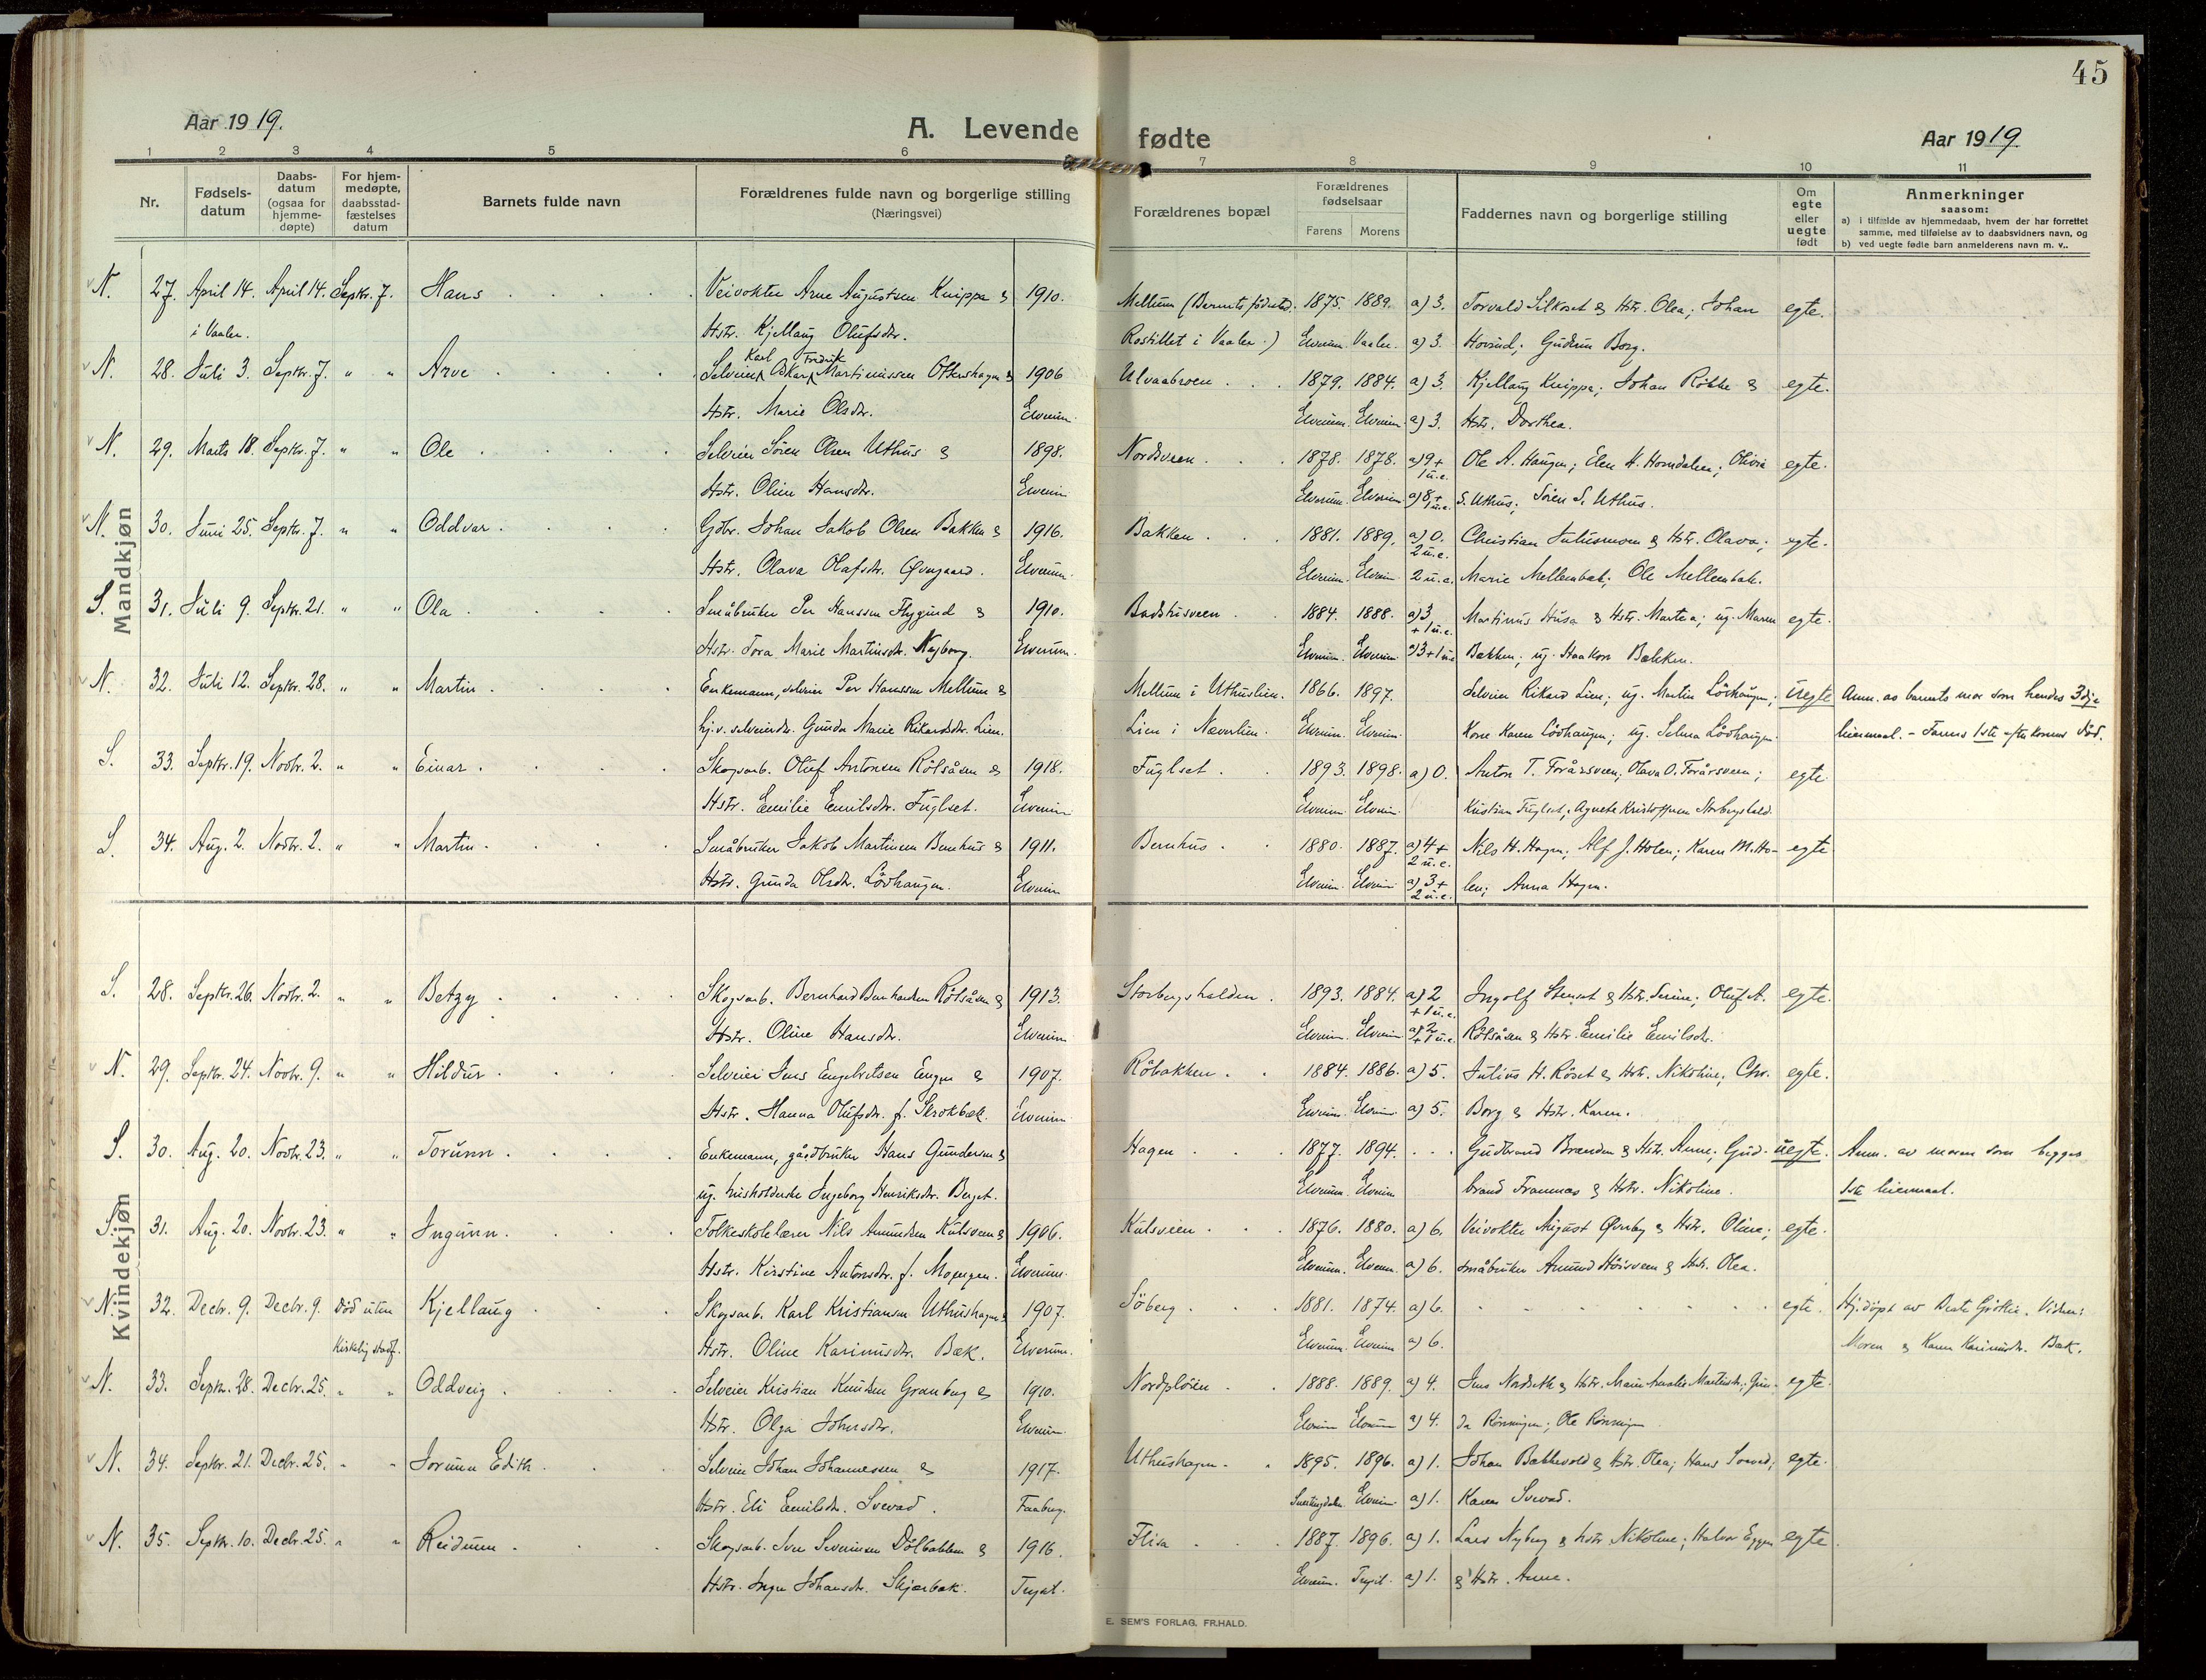 45
Aar 1919.
A. Levende fødte
Aar 1919
1 2 3 4 5 6 7 8 9 10 11
Nr.
Fødselsdatum
Daabsdatum (ogsaa for hjemmedøpte)
For hjemmedøpte, daabsstadfæstelses datum
Barnets fulde navn
Forældrenes fulde navn og borgerlige stilling (Næringsvei)
Forældrenes bopæl
Forældrenes fødselsaar
Farens Morens
Faddernes navn og borgerlige stilling
Om egte eller uegte født
Anmerkninger
saasom:
a) i tilfælde av hjemmedaab, hvem der har forrettet samme, med tilføielse av to daabsvidners navn, og
b) ved uegte fødte barn anmelderens navn m. v..
Mandkjøn
N. 27. April 14. April 14. Septr. 7. Hans Veivokter Arne Augustsen Knippa & 1910. Mellum (Barnets fødested: 1875. 1889. a) 3. Torvald Silkoset & Hstr. Olea; Johan egte.
i Vaaler. Hstr. Kjellaug Olufsdtr. Rostillet i Vaaler.) Elverum. Vaaler. a) 3. Hovind; Gudrun Borg.
N. 28. Juli 3. Septr. 7. " " Arve Selveier Karl Oskar Fredrik Martinissen Ottershagen & 1906 Ulvaabroen 1879. 1884. a) 3. Kjellaug Knippa; Johan Røkke & egte.
Hstr. Marie Olsdtr. Elverum. Elverum. Elverum. a) 3. Hstr. Dorthea.
N. 29. Marts 18. Septr. 7. " " Ole Selveier Sören Olsen Uthus & 1898. Nordsveen 1878. 1878. a) 9 + 1 u.e. Ole A. Haugen; Elen H. Horndalen; Olivia egte.
Hstr. Oline Hansdtr. Elverum Elverum. Elverum a) 8 + 1 u.e. S. Uthus; Sören S. Uthus.
N. 30. Juni 25. Septr. 7. " " Oddvar Gbr. Johan Jakob Olsen Bakken & 1916. Bakken 1881. 1889. a) 0. 2 u.e. Christian Julusmoen & Hstr. Olava; egte.
Hstr. Olava Olafsdtr. Øvergaard. Elverum. Elverum. Elverum 2 u.e. Marie Mellembak; Ole Mellembak.
S. 31. Juli 9. Septr. 21. " " Ola Småbruker Per Hanssen Flygind & 1910. Badstusveen 1884. 1888. a) 3 + 1 u.e. Martinus Husa & Hstr. Martea; ug. Maren egte.
Hstr. Tora Marie Martinsdtr. Nyborg. Elverum. Elverum. Elverum a) 3 + 1 u.e. Bakken; ug. Haakon Bakken.
N. 32. Juli 12. Septr. 28. " " Martin Enkemann, selveier Per Hanssen Mellum & Mellum i Uthuslien. 1866. 1897. Selveier Rikard Lien; ug. Martin Lövhaugen; uegte Anm. av barnets mor som hendes 3dje
hj.v. selveierdtr. Gunda Marie Rikardsdtr. Lien. Lien i Næverlien. Elverum. Elverum. Kone Karen Lövhaugen; ug. Selma Lövhaugen. leiermaal. - Farens 1ste efterkoners död.
S. 33. Septr. 19. Novbr. 2. " " Einar Skogsarb. Oluf Antonsen Rölsåsen & 1918. Fuglset 1893. 1898. a) 0. Anton T. Forårsveen; Olava O. Forårsveen; egte
Hstr. Emilie Emilsdtr. Fuglset. Elverum Elverum. Elverum. Kristian Fuglset; Agnete Kristoffersen Storbergshald.
S. 34. Aug. 2. Novbr. 2. " " Martin Småbruker Jakob Martinsen Bernhus & 1911. Bernhus 1880. 1887. a) 4 + 2 u.e. Nils H. Hagen; Alf J. Holen; Karen M. Ho- egte
Hstr. Gunda Olsdtr. Lövhaugen. Elverum Elverum. Elverum a) 3 + 2 u.e. len; Anna Hagen.
Kvindekjøn
S. 28. Septr. 26. Novbr. 2. " " Betzy Skogsarb. Bernhard Bernhardsen Rölsåsen & 1913. Storbergshalden. 1893. 1884. a) 2 + 1 u.e. Ingolf Stenset & Hstr. Serine; Oluf A. egte.
Hstr. Oline Hansdtr. Elverum Elverum. Elverum a) 2 + 1 u.e. Rölsåsen & Hstr. Emilie Emilsdtr.
N. 29. Septr. 24. Novbr. 9. " " Hildur Selveier Jens Engebretsen Engen & 1907. Råbakken 1884. 1886. a) 5. Julius H. Röset & Hstr. Nikoline; Chr. egte.
Hstr. Hanna Olufsdtr. f. Skrokbæk. Elverum Elverum. Elverum a) 5. Borg & Hstr. Karen.
S. 30. Aug. 20. Novbr. 23. " " Torunn Enkemann, gårdbruker Hans Gundersen & Hagen 1877. 1894. Gudbrand Brænden & Hstr. Anne; Gud- uegte. Anm. av moren som begges
ug. husholderske Ingeborg Henriksdtr. Berget. Elverum Elverum brand Framnæs & Hstr. Nikoline. 1ste leiermaal.
S. 31. Aug. 20. Novbr. 23. " " Ingunn Folkeskolelærer Nils Amundsen Kulsveen & 1906. Kulsveen 1876. 1880. a) 6. Veivokter August Øverby & Hstr. Oline; egte.
Hstr. Kirstine Antonsdtr. f. Moejen. Elverum. Elverum. Elverum. a) 6. småbruker Amund Höisveen & Hstr. Olea.
N. 32. Decbr. 9. Decbr. 9. Död uten Kjellaug Skogsarb. Karl Kristiansen Uthushagen & 1907. Söberg 1881. 1874. a) 6. egte. Hj.döpt av Beate Grötlie. Vidner:
kirkelig stadf. Hstr. Oline Karinusdtr. Bæk. Elverum. Elverum. Elverum a) 6. Moren & Karen Karinusdtr. Bæk.
N. 33. Septr. 28. Decbr. 25. " " Oddveig Selveier Kristian Knudsen Granberg & 1910. Nordplöien 1888. 1889. a) 4. Jens Nordseth & Hstr. Marie Amalie Martinsdtr.; Gun- egte.
Hstr. Olga Johnsdtr. Elverum. Elverum Elverum a) 4. da Rönningen; Ole Rönningen
N. 34. Septr. 21. Decbr. 25. " " Jorunn Edith Selveier Johan Johannessen & 1917. Uthushagen 1895. 1896. a) 1. Johan Bakkevold & Hstr. Olea; Hans Svevad; egte.
Hstr. Eli Emilsdtr. Svevad. Faaberg. Elverum a) 1. Karen Svevad.
N. 35. Septr. 10. Decbr. 25. " " Reidunn Skogsarb. Iver Severinsen Dölbakken & 1916. Flisa 1887. 1896. a) 1. Lars Nyberg & hstr. Nikoline; Halvor Eggen egte.
Hstr. Inga Johansdtr. Skjærbæk. Trysil. Elverum. Trysil. a) 1. & Hstr. Anne.
E. SEM'S FORLAG, FR.HALD.